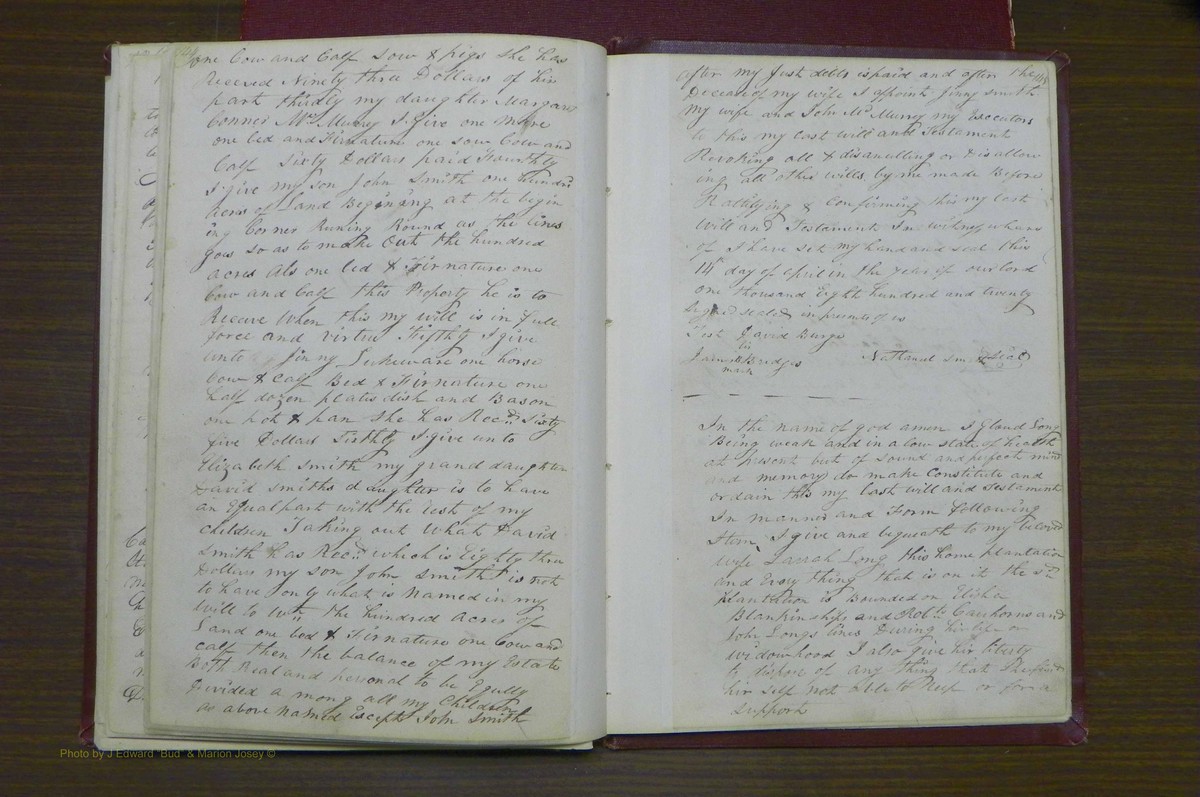 one Cow and Calf Sow & pigs She has
Receved Ninety three Dollars of his
part thirdly my daughter Margaret
Conner McMurrey I give one more
one bed and Firnature one sow Cow and
Calf Sixty Dollars paid Fourthly
I give my son John Smith one hundred
acres of Land Begining at the begin
ing Corner Runing Round as the lines
goes so as to make out the hundred
acres als one bed & Firnature one
Cow and Calf this Property he is to
Receive When this my will is in full
force and virtue Fifthly I give
unto Jinny one horse
Cow & Calf Bed & Firnature one
half dozen plates dish and Bason
one pot & pan She has Recd. Sixty
five Dollars Sixthly I give unto
Elizabeth Smith my grand daughter
David Smiths daughter is to have
an Equal part with the rest of my
children Taking out What David
Smith has Recd. which is Eighty three
Dollars my son John Smith is not
to have only what is Named in my
Will to Wit. the hundred Acres of
Land one bed & Firnature one Cow and
calf then the balance of my Estate
Both Real and personal to be Eqully
Devided a mong all my Children
as above named except John Smith
after my Just debts is paid and after the
Decease of my wife I appoint Jinny Smith
my wife and John McMurrey my Executors
to this my Last will and Testament
Revoking all & disanulling or Disallow
ing all other wills by me made Before
Rattifying & Confirming this my last
Will and Testament In witness whare
of I have set my hand and seal this
14th day of April in the year of our lord
one thousand Eight hundred and twenty
signed sealed in presents of us
Test David Burge
his
James Bridges Nathaniel Smith Seal
mark
In the name of god amen I Long
Being weak and in a low state of health
at present but of sound and perfect mind
and memory do make Constitute and
ordain this my Last will and Testament
In manner and Form Following
Item I give and bequeath to my beloved
wife Long this home plantation
and Every thing that is on it the sd.
plantation is Bounded on Elisha
Blankinships and Robt. Cawhorns and
John Longs lines During hir life or
widowhood I also give hir liberty
to dispose of any thing that She finds
hir self not able to Keep or for a
support
Photo by J Edward "Bud" & Marion Josey ©